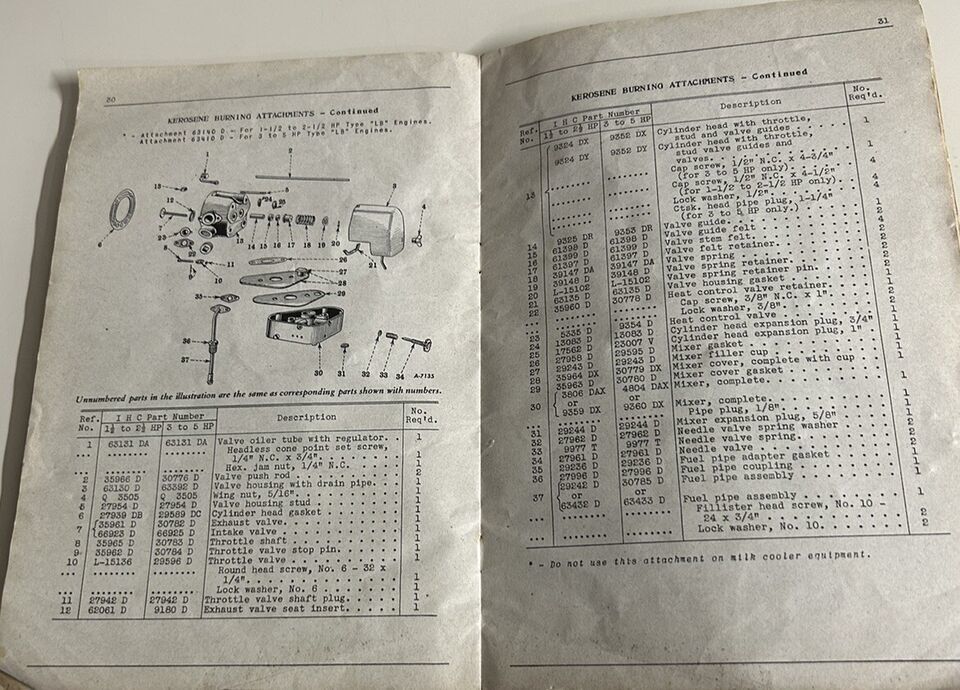 30
KEROSENE BURNING ATTACHMENTS - Continued
* - Attachment 63140 D - For 1-1/2 to 2-1/2 HP Type "LB" Engines.
Attachment 63410 D - For 3 to 5 HP Type "LB" Engines.
A-7135
Unnumbered parts in the illustration are the same as corresponding parts shown with numbers.
Ref. No. I H C Part Number 1½ to 2½ HP 3 to 5 HP Description No. Req'd.
1 63131 DA 63131 DA Valve oiler tube with regulator. . 1
Headless cone point set screw,
1/4" N.C. x 3/4". 1
Hex. jam nut, 1/4" N.C. 1
2 35966 D 30776 D Valve push rod 2
3 63130 D 63392 D Valve housing with drain pipe. 1
4 Q 3505 Q 3505 Wing nut, 5/16". 1
5 27954 D 27954 D Valve housing stud 1
6 27939 DB 29589 DC Cylinder head gasket 1
7 35961 D 30782 D Exhaust valve. 1
66923 D 66925 D Intake valve 1
8 35965 D 30783 D Throttle shaft 1
9 35962 D 30784 D Throttle valve stop pin. 1
10 L-15136 29596 D Throttle valve 1
Round head screw, No. 6 - 32 x
1/4". 1
Lock washer, No. 6 1
11 27942 D 27942 D Throttle valve shaft plug. 1
12 62061 D 9180 D Exhaust valve seat insert. 1
31
KEROSENE BURNING ATTACHMENTS - Continued
Ref. No. I H C Part Number 1½ to 2½ HP 3 to 5 HP Description No. Req'd.
13 9324 DX 9352 DX Cylinder head with throttle,
stud and valve guides 1
9324 DY 9352 DY Cylinder head with throttle,
stud valve guides and
valves. 1
Cap screw, 1/2" N.C. x 4-3/4"
(for 3 to 5 HP only). 4
Cap screw, 1/2" N.C. x 4-1/2"
(for 1-1/2 to 2-1/2 HP only). 4
Lock washer, 1/2" 4
Ctsk. head pipe plug, 1-1/4"
(for 3 to 5 HP only.)
14 9325 DR 9353 DR Valve guide.
15 61398 D 61398 D Valve guide felt
16 61399 D 61399 D Valve stem felt.
17 61397 D 61397 D Valve felt retainer.
18 39147 DA 39147 DA Valve spring
19 39148 D 39148 D Valve spring retainer.
20 L-15102 L-15102 Valve spring retainer pin.
21 63135 D 63135 D Valve housing gasket
22 35960 D 30778 D Heat control valve retainer.
Cap screw, 3/8" N.C. x 1".
Lock washer, 3/8".
23 5335 D 9354 D Heat control valve
24 13083 D 13083 D Cylinder head expansion plug, 3/4"
25 17562 D 23007 V Cylinder head expansion plug, 1"
26 27958 D 29595 D Mixer gasket
27 29243 D 29243 D Mixer filler cup
28 35964 DX 30779 DX Mixer cover, complete with cup
29 35963 D 30780 D Mixer cover gasket
30 3806 DAX 4804 DAX Mixer, complete.
or or
9359 DX 9360 DX Mixer, complete.
Pipe plug, 1/8".
31 29244 D 29244 D Mixer expansion plug, 5/8"
32 27962 D 27962 D Needle valve spring washer
33 9977 T 9977 T Needle valve spring.
34 27961 D 27961 D Needle valve
35 29236 D 29236 D Fuel pipe adapter gasket
36 27996 D 27996 D Fuel pipe coupling
37 29242 D 30785 D Fuel pipe assembly
or or
63432 D 63433 D Fuel pipe assembly 1
Fillister head screw, No. 10 -
24 x 3/4" 2
Lock washer, No. 10. 2
* - Do not use this attachment on milk cooler equipment.